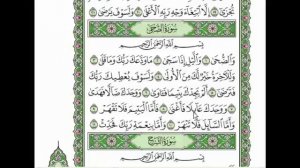 تُجْزَىٰٓ ١٩ إِلَّا ٱبْتِغَآءَ وَجْهِ رَبِّهِ ٱلْأَعْلَىٰ ٢٠ وَلَسَوْفَ يَرْضَىٰ ٢١
سُورَةُ الضُّحَى
بِسْمِ ٱللَّهِ ٱلرَّحْمَٰنِ ٱلرَّحِيمِ
وَٱلضُّحَىٰ ١ وَٱلَّيْلِ إِذَا سَجَىٰ ٢ مَا وَدَّعَكَ رَبُّكَ وَمَا قَلَىٰ ٣
وَلَلْءَاخِرَةُ خَيْرٌ لَّكَ مِنَ ٱلْأُولَىٰ ٤ وَلَسَوْفَ يُعْطِيكَ رَبُّكَ
فَتَرْضَىٰٓ ٥ أَلَمْ يَجِدْكَ يَتِيمًا فَـَٔاوَىٰ ٦ وَوَجَدَكَ ضَآلًّا فَهَدَىٰ
٧ وَوَجَدَكَ عَآئِلًا فَأَغْنَىٰ ٨ فَأَمَّا ٱلْيَتِيمَ فَلَا تَقْهَرْ
٩ وَأَمَّا ٱلسَّآئِلَ فَلَا تَنْهَرْ ١٠ وَأَمَّا بِنِعْمَةِ رَبِّكَ فَحَدِّثْ ١١
سُورَةُ الشَّرْحِ
بِسْمِ ٱللَّهِ ٱلرَّحْمَٰنِ ٱلرَّحِيمِ